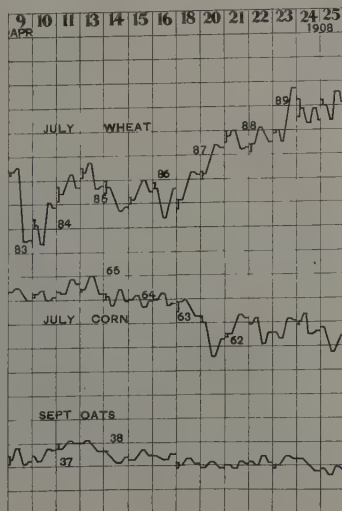 9 10 11 13 14 15 16 17 18 20 21 22 23 24 25
APR 1908
89
JULY WHEAT
88
87
86
85
84
83
65
64
JULY CORN
63
62
SEPT OATS
38
37